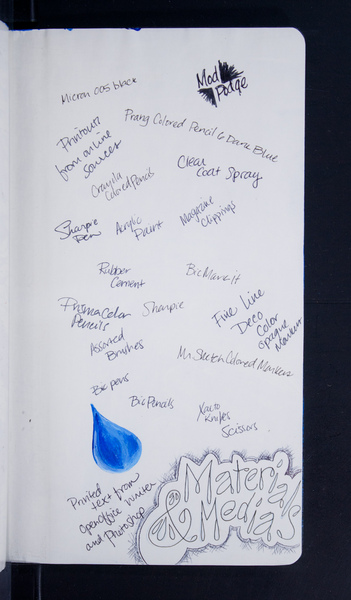 Micron 005 black
Mod
Podge
Prang Colored Pencil & Dark Blue
Printouts
from online
sources
Clear
Coat Spray
Crayola
Colored Pencils
Magazine
Clippings
Sharpie
Pen
Acrylic
Paint
Rubber
Cement
Bic Mark it
PrismaColor
Pencils
Sharpie
Fine Line
Deco
Color
Opaque
Marker
Assorted
Brushes
Mr. Sketch Colored Markers
Bic pens
Bic Pencils
Xacto
Knifes
Scissors
Printed
text from
OpenOffice Writer
and Photoshop
Materials
& Media's